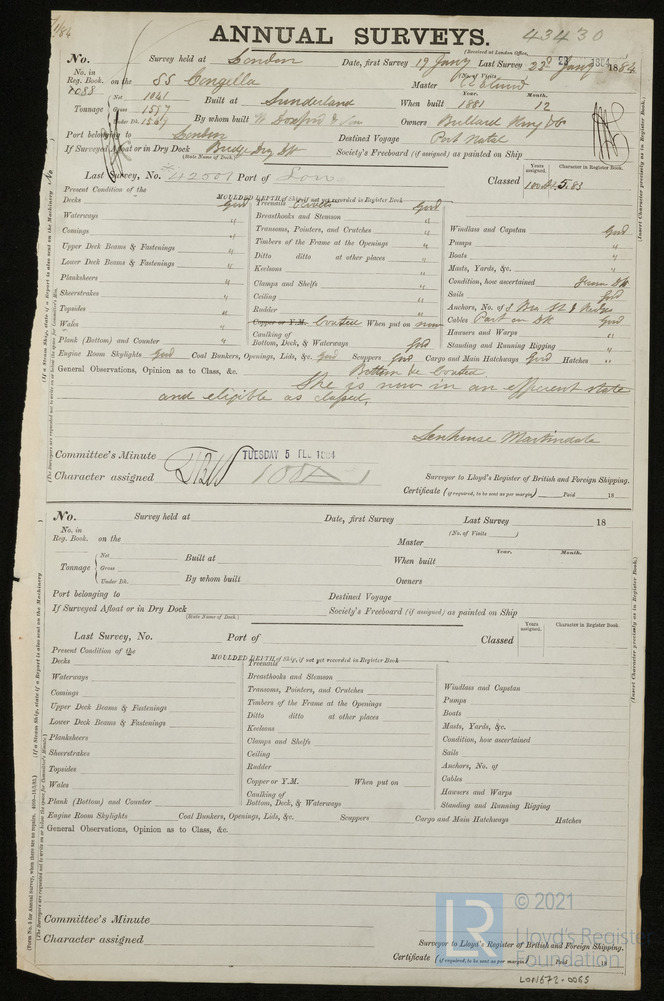 ANNUAL SURVEYS. 43430
(Received at London Office,
No. Survey held at London Date, first Survey 19 Jany Last Survey 22d Jany 1884
No. in Reg. Book. on the SS Congella Master
7088 (No. of Visits
Tonnage Net 1041 Built at Sunderland When built Year. 1881 Month. 12
Gross 1597
Under Dk. 1569 By whom built W Doxford & Son Owners Bullard King & Co
Port belonging to London Destined Voyage Port Natal
If Surveyed Afloat or in Dry Dock Bridge Dry Dk Society's Freeboard (if assigned) as painted on Ship
(State Name of Dock.)
Last Survey, No. 42001 Port of Lon Classed Years assigned. 100A1 Character in Register Book. 5.83
Present Condition of the MOULDED DEPTH of Ship, if not yet recorded in Register Book
Decks Good Treenails Rivets Good
Waterways " Breasthooks and Stemson " Windlass and Capstan Good
Comings " Transoms, Pointers, and Crutches " Pumps "
Upper Deck Beams & Fastenings " Timbers of the Frame at the Openings " Boats "
Lower Deck Beams & Fastenings " Ditto ditto at other places " Masts, Yards, &c. "
Planksheers " Keelsons " Condition, how ascertained from Dk
Sheerstrakes " Clamps and Shelfs " Sails Good
Topsides " Ceiling " Anchors, No. of
Wales " Rudder " Cables Part on Dk Good
Plank (Bottom) and Counter " Copper or Y.M. Coated When put on now Hawsers and Warps "
Caulking of Bottom, Deck, & Waterways Good Standing and Running Rigging "
Engine Room Skylights Good Coal Bunkers, Openings, Lids, &c. Good Scuppers Good Cargo and Main Hatchways Good Hatches "
General Observations, Opinion as to Class, &c. Bottom re Coated.
She is now in an efficient state
and eligible as classed.
Senhouse Martindale
Committee's Minute TUESDAY 5 FEB 1884
Character assigned 100A1
Surveyor to Lloyd's Register of British and Foreign Shipping.
Certificate (if required, to be sent as per margin) Paid 18
No. Survey held at Date, first Survey Last Survey 18
No. in Reg. Book. on the Master (No. of Visits )
Tonnage Net Built at When built Year. Month.
Gross
Under Dk. By whom built Owners
Port belonging to Destined Voyage
If Surveyed Afloat or in Dry Dock Society's Freeboard (if assigned) as painted on Ship
(State Name of Dock.)
Last Survey, No. Port of Classed Years assigned. Character in Register Book.
Present Condition of the MOULDED DEPTH of Ship, if not yet recorded in Register Book
Decks Treenails
Waterways Breasthooks and Stemson Windlass and Capstan
Comings Transoms, Pointers, and Crutches Pumps
Upper Deck Beams & Fastenings Timbers of the Frame at the Openings Boats
Lower Deck Beams & Fastenings Ditto ditto at other places Masts, Yards, &c.
Planksheers Keelsons Condition, how ascertained
Sheerstrakes Clamps and Shelfs Sails
Topsides Ceiling Anchors, No. of
Wales Rudder Cables
Plank (Bottom) and Counter Copper or Y.M. When put on Hawsers and Warps
Caulking of Bottom, Deck, & Waterways Standing and Running Rigging
Engine Room Skylights Coal Bunkers, Openings, Lids, &c. Scuppers Cargo and Main Hatchways Hatches
General Observations, Opinion as to Class, &c.
Committee's Minute
Character assigned
Surveyor to Lloyd's Register of British and Foreign Shipping.
Certificate (if required, to be sent as per margin) Paid 18
LR © 2021
Lloyd's Register
Foundation
LON672-0065